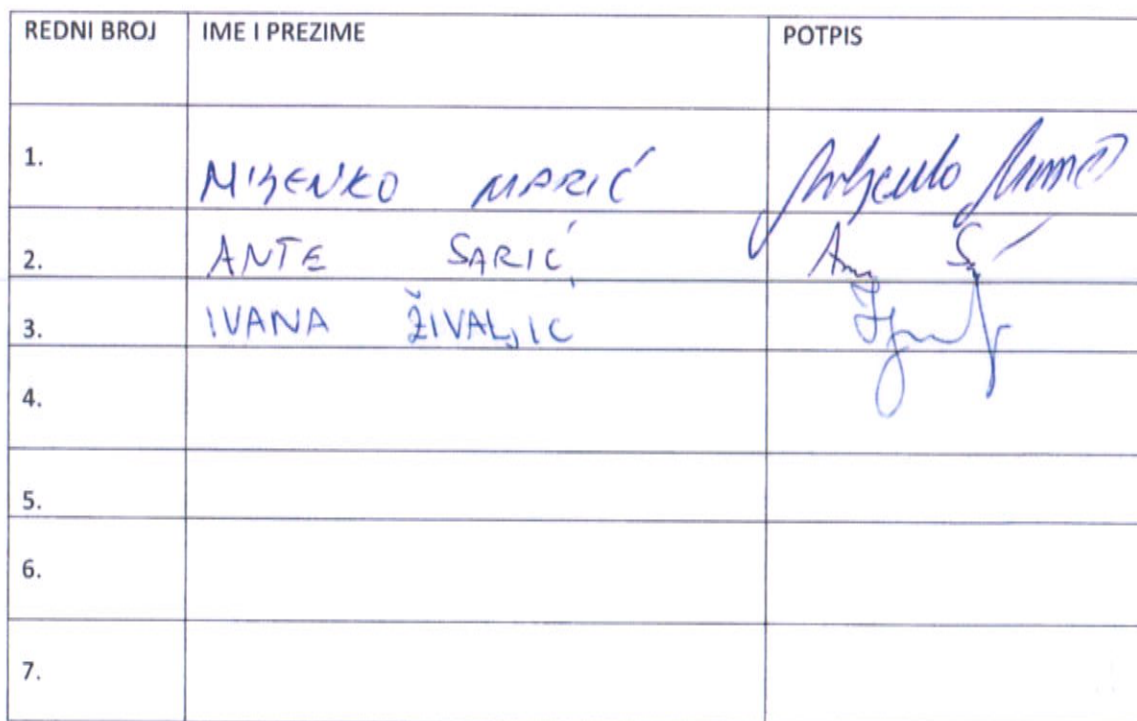 REDNI BROJ IME I PREZIME POTPIS
1. MARIĆ
2. ANTE SARIĆ
3. IVANA ŽIVALJIC
4.
5.
6.
7.